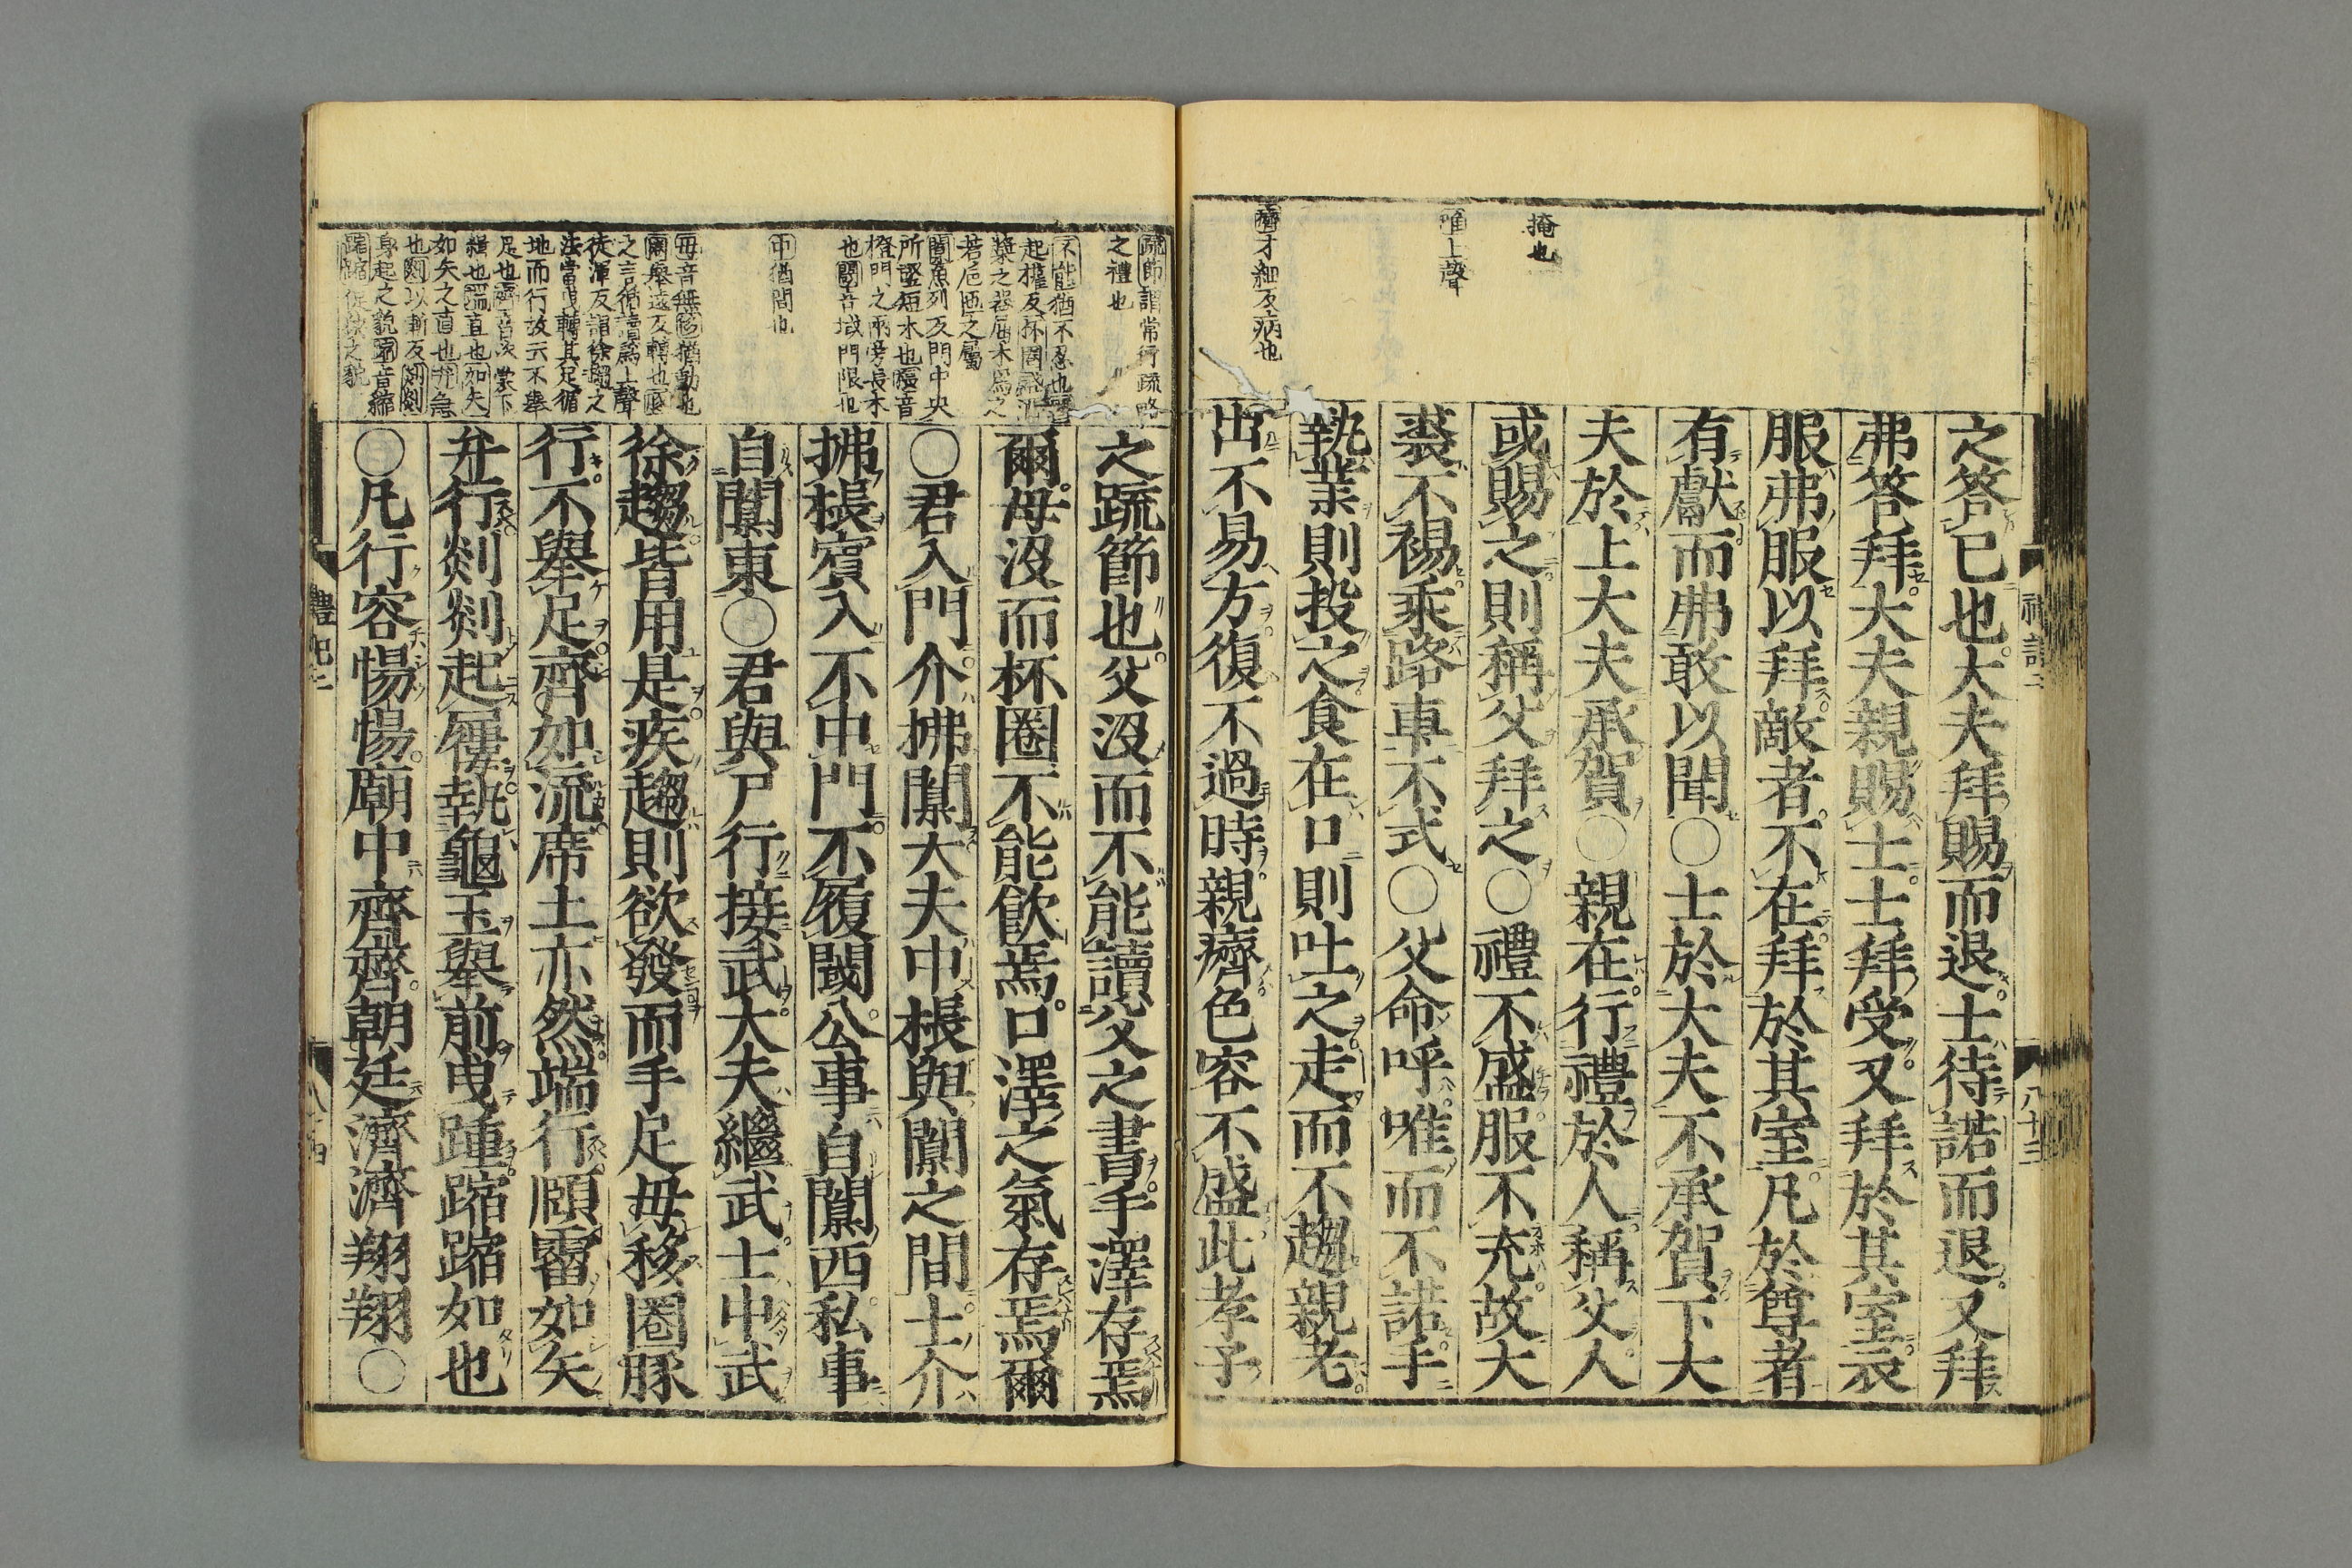 掩也
唯上聲
癠才細反病也
之答已也大夫拜賜而退士待諾而退又拜
弗答拜大夫親賜士士拜受又拜於其室衣
服弗服以拜敵者不在拜於其室凡於尊者
有獻而弗敢以聞○士於大夫不承賀下大
夫於上大夫承賀○親在行禮於人稱父人
或賜之則稱父拜之○禮不盛服不充故大
裘不裼乘路車不式○父命呼唯而不諾手
執業則投之食在口則吐之走而不趨親老
出不易方復不過時親癠色容不盛此孝子
八十三
疏節謂常行疏略
之禮也
不能猶不忍也
起權反杯圈盛
羹之器屈木爲之
若巵匜之屬
闑魚列反門中央
所竪短木也棖音
橙門之兩旁長木
也閾音域門限也
中猶間也
毋音無移猶動也
之言循讀爲上聲
徒渾反謂徐趨之
法當曳轉其足循
地而行故云不舉
足也齊音咨裳下
緝也端直也如矢
如矢之直也弁急
也剡以漸反剡剡
身起之貌蹜音縮
蹜蹜促狹之貌
之疏節也父沒而不能讀父之書手澤存焉
爾母沒而杯圈不能飮焉口澤之氣存焉爾
○君入門介拂闑大夫中棖與闑之間士介
拂棖賓入不中門不履閾公事自闑西私事
自闑東○君與尸行接武大夫繼武士中武
徐趨皆用是疾趨則欲發而手足毋移圈豚
行不舉足齊如流席上亦然端行頤霤如矢
弁行剡剡起屨執龜玉舉前曳踵蹜蹜如也
○凡行容愓愓廟中齊齊朝廷濟濟翔翔○
禮記二